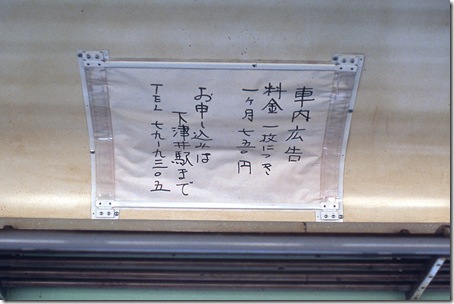 車内広告
料金一枚につき
一ヶ月七五〇円
お申し込みは
下津井駅まで
TEL 七九-九三〇五